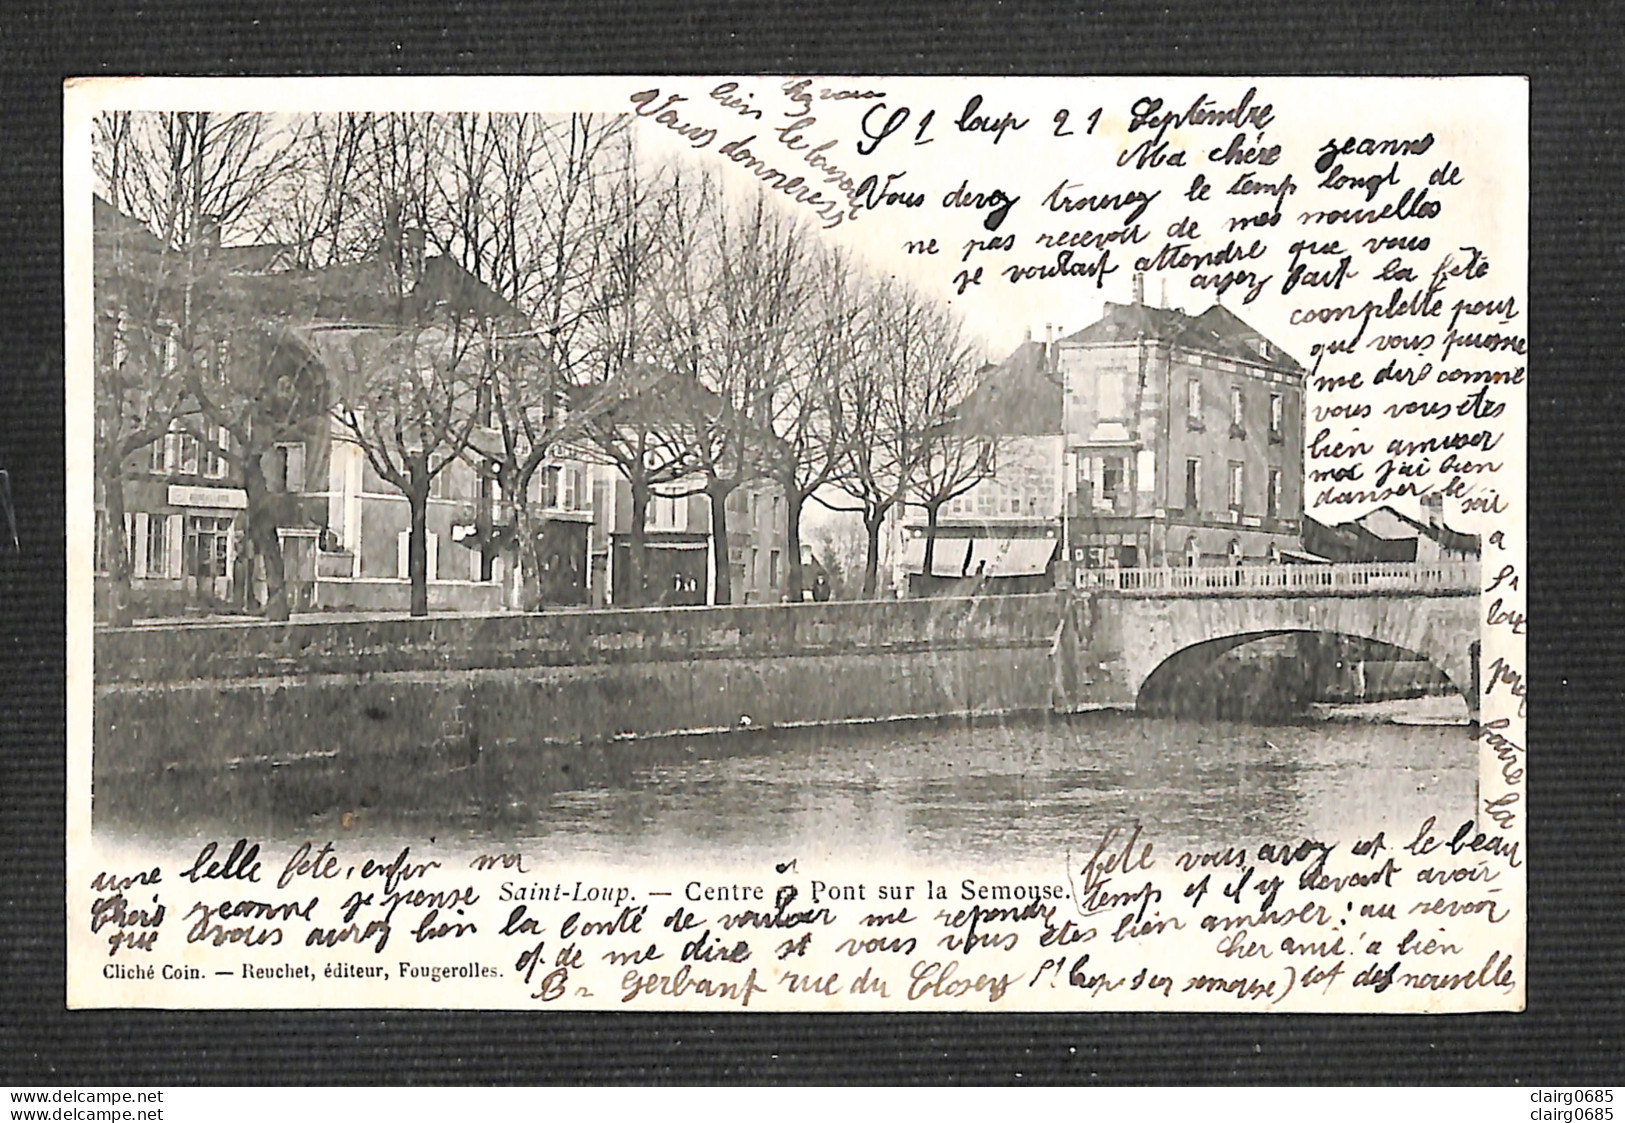 St loup 21 Septembre
Ma chère jeanne
Vous devez trouvez le temp longt de
ne pas recevoir de mes nouvelles
je voulait attendre que vous
ayez fait la fête
complette pour
que vous puisse
me dire comme
vous vous êtes
bien amuser
moi j'ai bien
danser le
soir
a
St
loup
pour
la
une belle fete, enfin ma
chere jeanne je pense
que vous aurez bien la bonté de vouloir me repondre
et de me dire si vous vous êtes bien amuser! au revoir
cher amie! a bien
fete vous avez et le beau
temp et il y devait avoir
B Gerbant rue du Closey St loup sur semouse) tot des nouvelles
Vous donneress
bien le bonjour
chez vous
Saint-Loup. — Centre et Pont sur la Semouse.
Cliché Coin. — Reuchet, éditeur, Fougerolles.
clairg0685
clairg0685
clairg0685
clairg0685